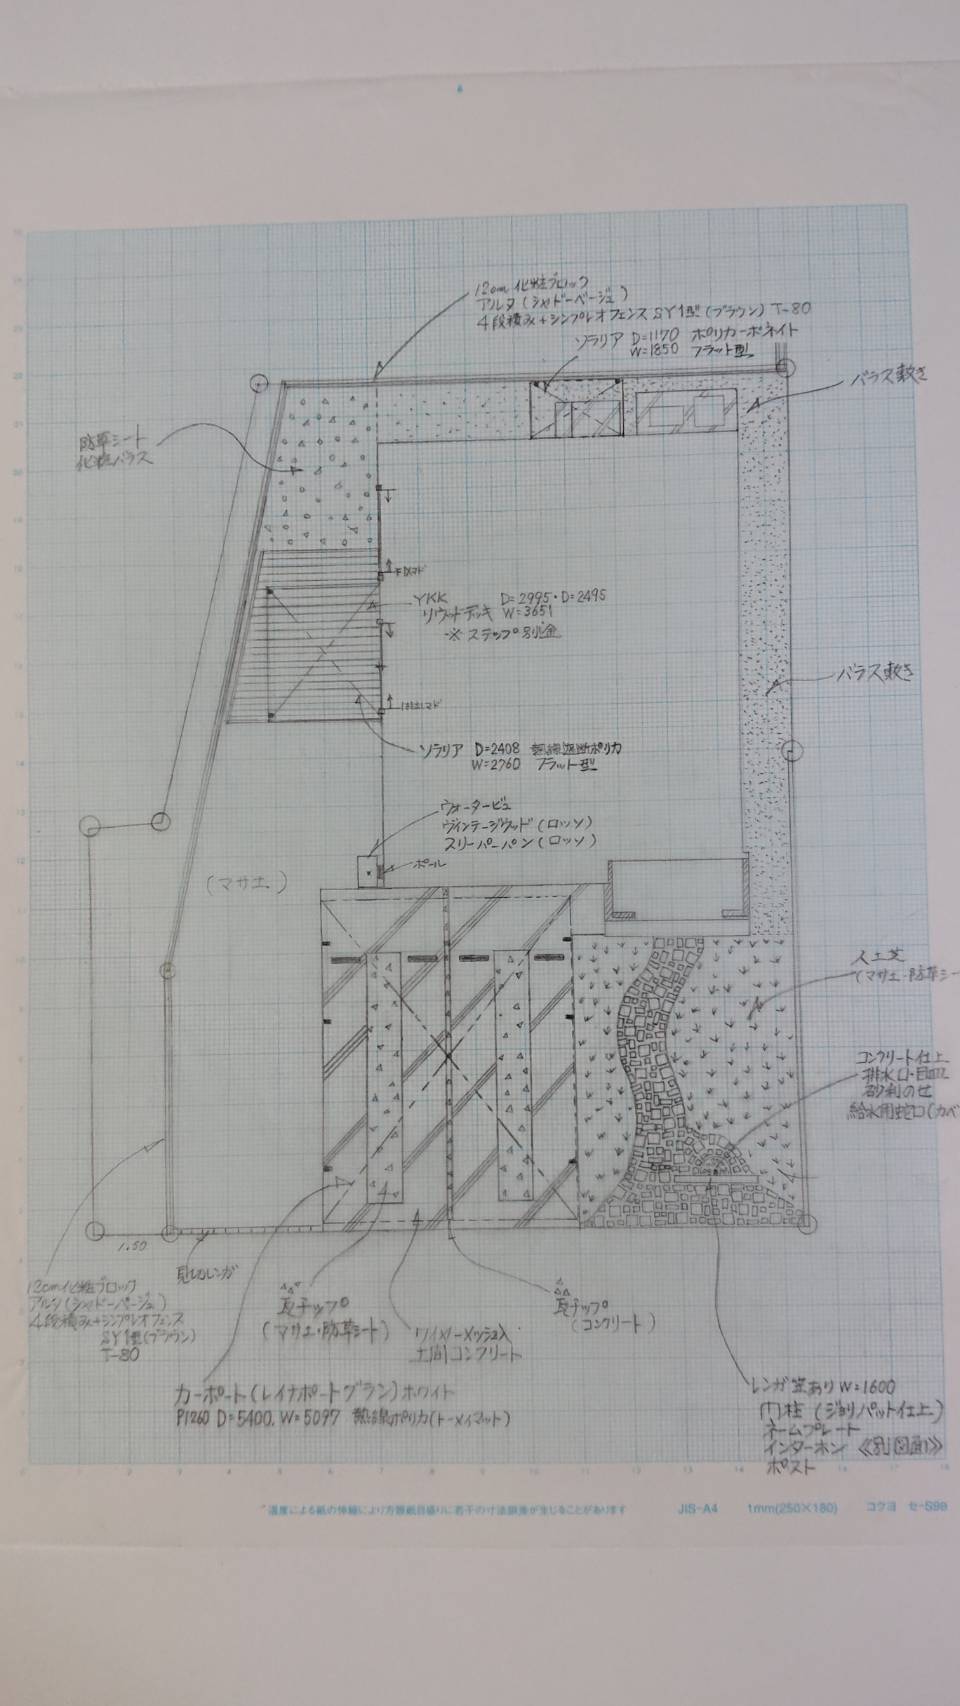 12cm化粧ブロック
アルタ(シャドーベージュ)
4段積み+シンプレオフェンス SY1型(ブラウン) T-80
ソラリア D=1170 ポリカーボネイト
W=1850 フラット型
バラス敷き
防草シート
化粧バラス
YKK D=2995・D=2495
リウッドデッキ W=3651
※ステップ別途
バラス敷き
ソラリア D=2408 熱線遮断ポリカ
W=2760 フラット型
ウォータービュ
ヴィンテージウッド(ロッソ)
スリーパーパン(ロッソ)
ポール
(マサ土)
人工芝
(マサ土・防草シー
コンクリート仕上
排水口・目皿
砂利のせ
給水用蛇口(カベ
1.50
見切レンガ
12cm化粧ブロック
アルタ(シャドーベージュ)
4段積み+シンプレオフェンス
SY1型(ブラウン)
T-80
瓦チップ
(マサ土・防草シート)
ワイヤーメッシュ入
土間コンクリート
瓦チップ
(コンクリート)
カーポート(レイナポートグラン)ホワイト
P1260 D=5400, W=5097 熱線ポリカ(トーメイマット)
レンガ笠あり W=1600
門柱(ジョリパット仕上)
ネームプレート
インターホン 《別図面》
ポスト
温度による紙の伸縮により方眼紙目盛りに若干の寸法誤差が生じることがあります
JIS-A4 1mm(250×180) コクヨ セ-S99